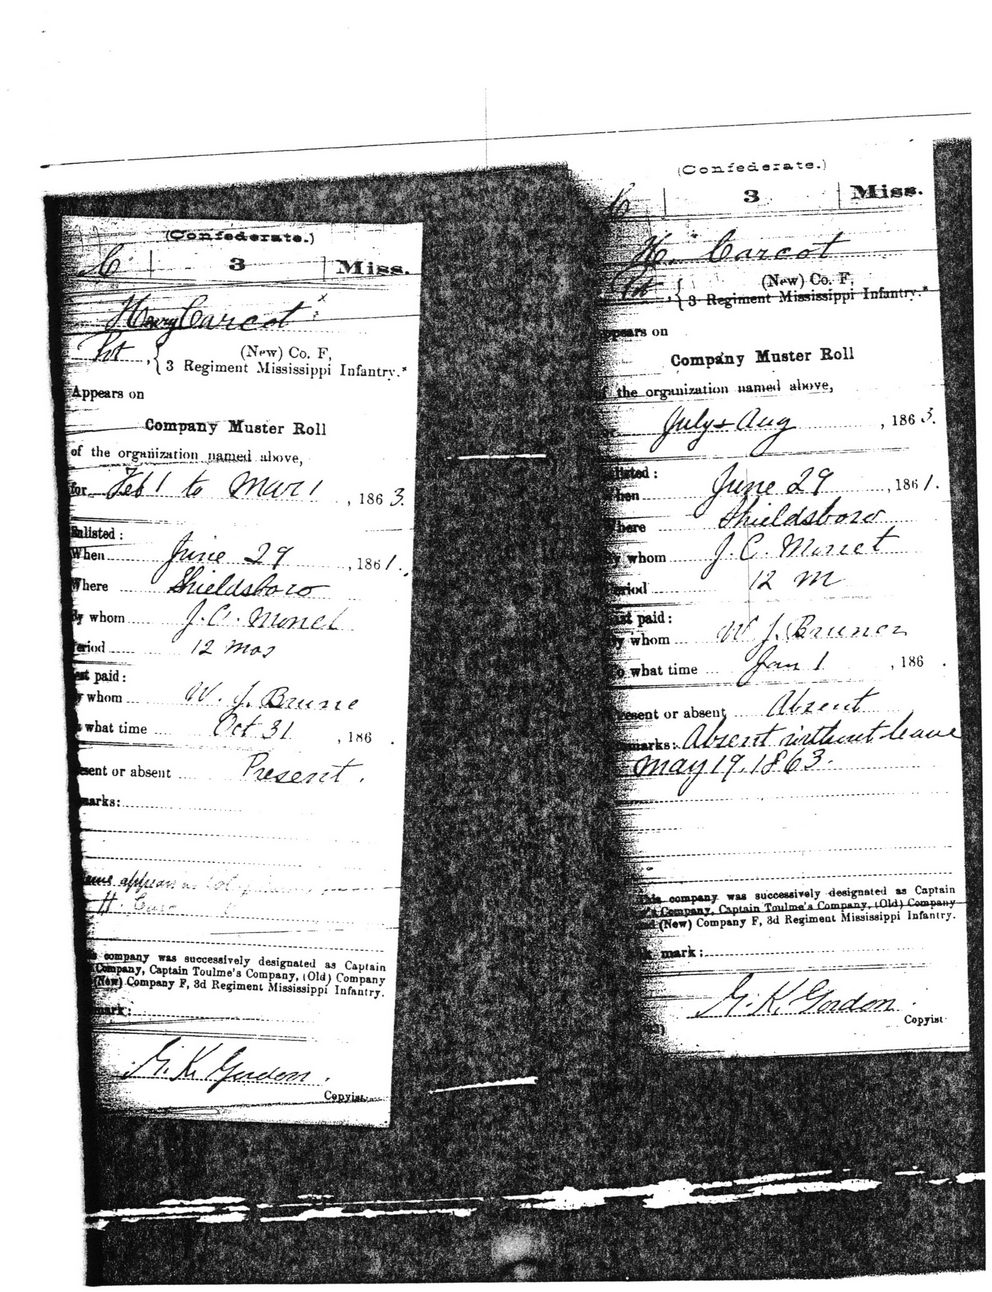 (Confederate.)
C 3 Miss.
Henry Carcot x
Pvt, { (New) Co. F,
3 Regiment Mississippi Infantry.*
Appears on
Company Muster Roll
of the organization named above,
for Feb 1 to Mar 1, 1863.
Enlisted:
When June 29, 1861.
Where Shieldsboro
By whom J. C. Monet
Period 12 mos
Last paid:
By whom W. J. Brune
To what time Oct 31, 186 .
Present or absent Present.
Remarks:
Name appears as
H. Carc
This company was successively designated as Captain
Company, Captain Toulme's Company, (Old) Company
(New) Company F, 3d Regiment Mississippi Infantry.
mark:
G. K. Gordon.
Copyist.
(Confederate.)
C 3 Miss.
H. Carcot
Pvt, { (New) Co. F,
3 Regiment Mississippi Infantry.*
Appears on
Company Muster Roll
of the organization named above,
July & Aug, 1863.
Enlisted:
When June 29, 1861.
Where Shieldsboro
By whom J. C. Monet
Period 12 m
Last paid:
By whom W. J. Bruner
To what time Jan 1, 186 .
Present or absent Absent
Remarks: Absent without leave
May 19. 1863.
This company was successively designated as Captain
's Company, Captain Toulme's Company, (Old) Company
and (New) Company F, 3d Regiment Mississippi Infantry.
mark:
G. K. Gordon.
Copyist